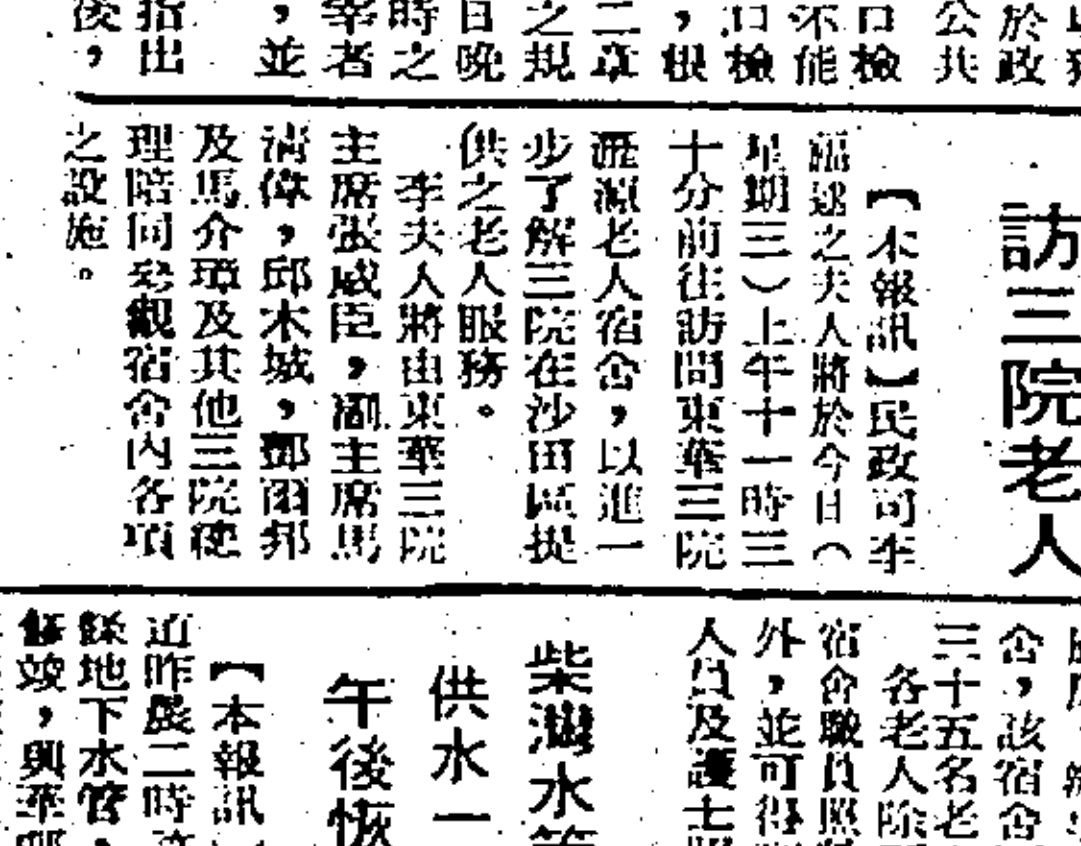 於政
公共
口檢
不能
口檢
，根
二章
之規
日晚
時之
宰者
，並
指出
後，
訪三院老人
【本報訊】民政司李
福逑之夫人將於今日（
星期三）上午十一時三
十分前往訪問東華三院
瀝源老人宿舍，以進一
步了解三院在沙田區提
供之老人服務。
李夫人將由東華三院
主席張威臣，副主席馬
清偉，邱木城，鄧雨邦
及馬介璋及其他三院總
理陪同參觀宿舍內各項
之設施。
舍，該宿舍
三十五名老
各老人除
宿舍職員照
外，並可得
人員及護士
柴灣水
供水一
午後恢
【本報訊
道昨晨二時
餘地下水管，
修竣，興華